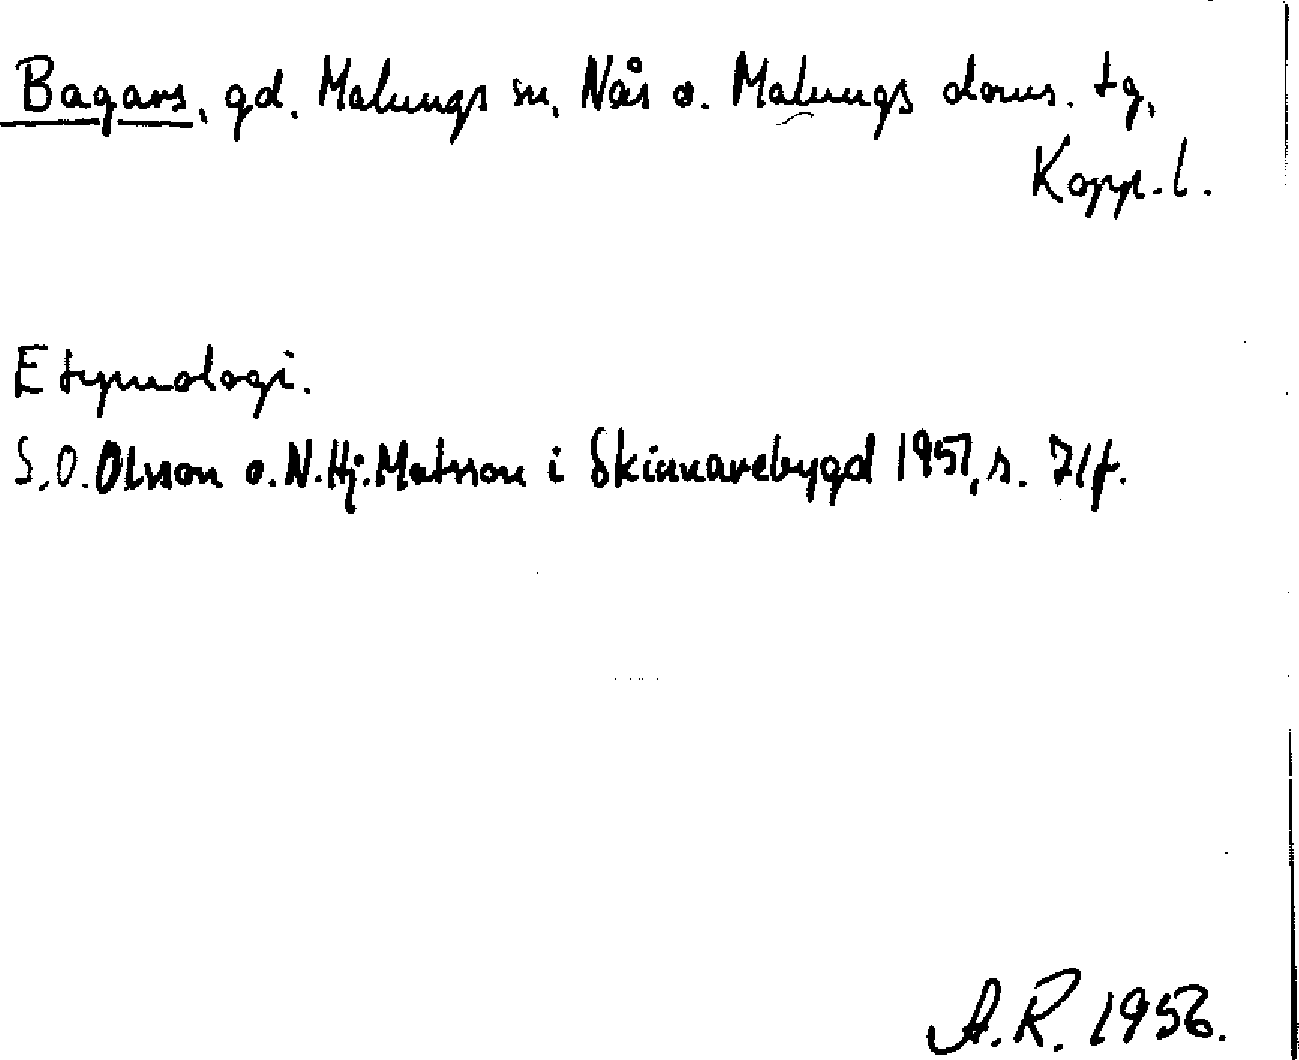 Bagars, gd. Malungs sn, Nås o. Malungs doms. tg,
Kopp. l.
Etymologi.
S.O. Olsson o. N.Hj. Matsson i Skinnarebygd 1951, s. 71f.
A.R. 1956.